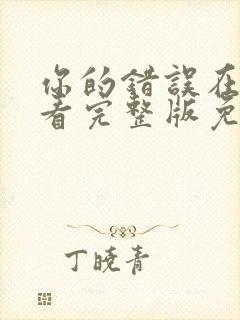 你的錯誤在
看完整版免
丁曉青